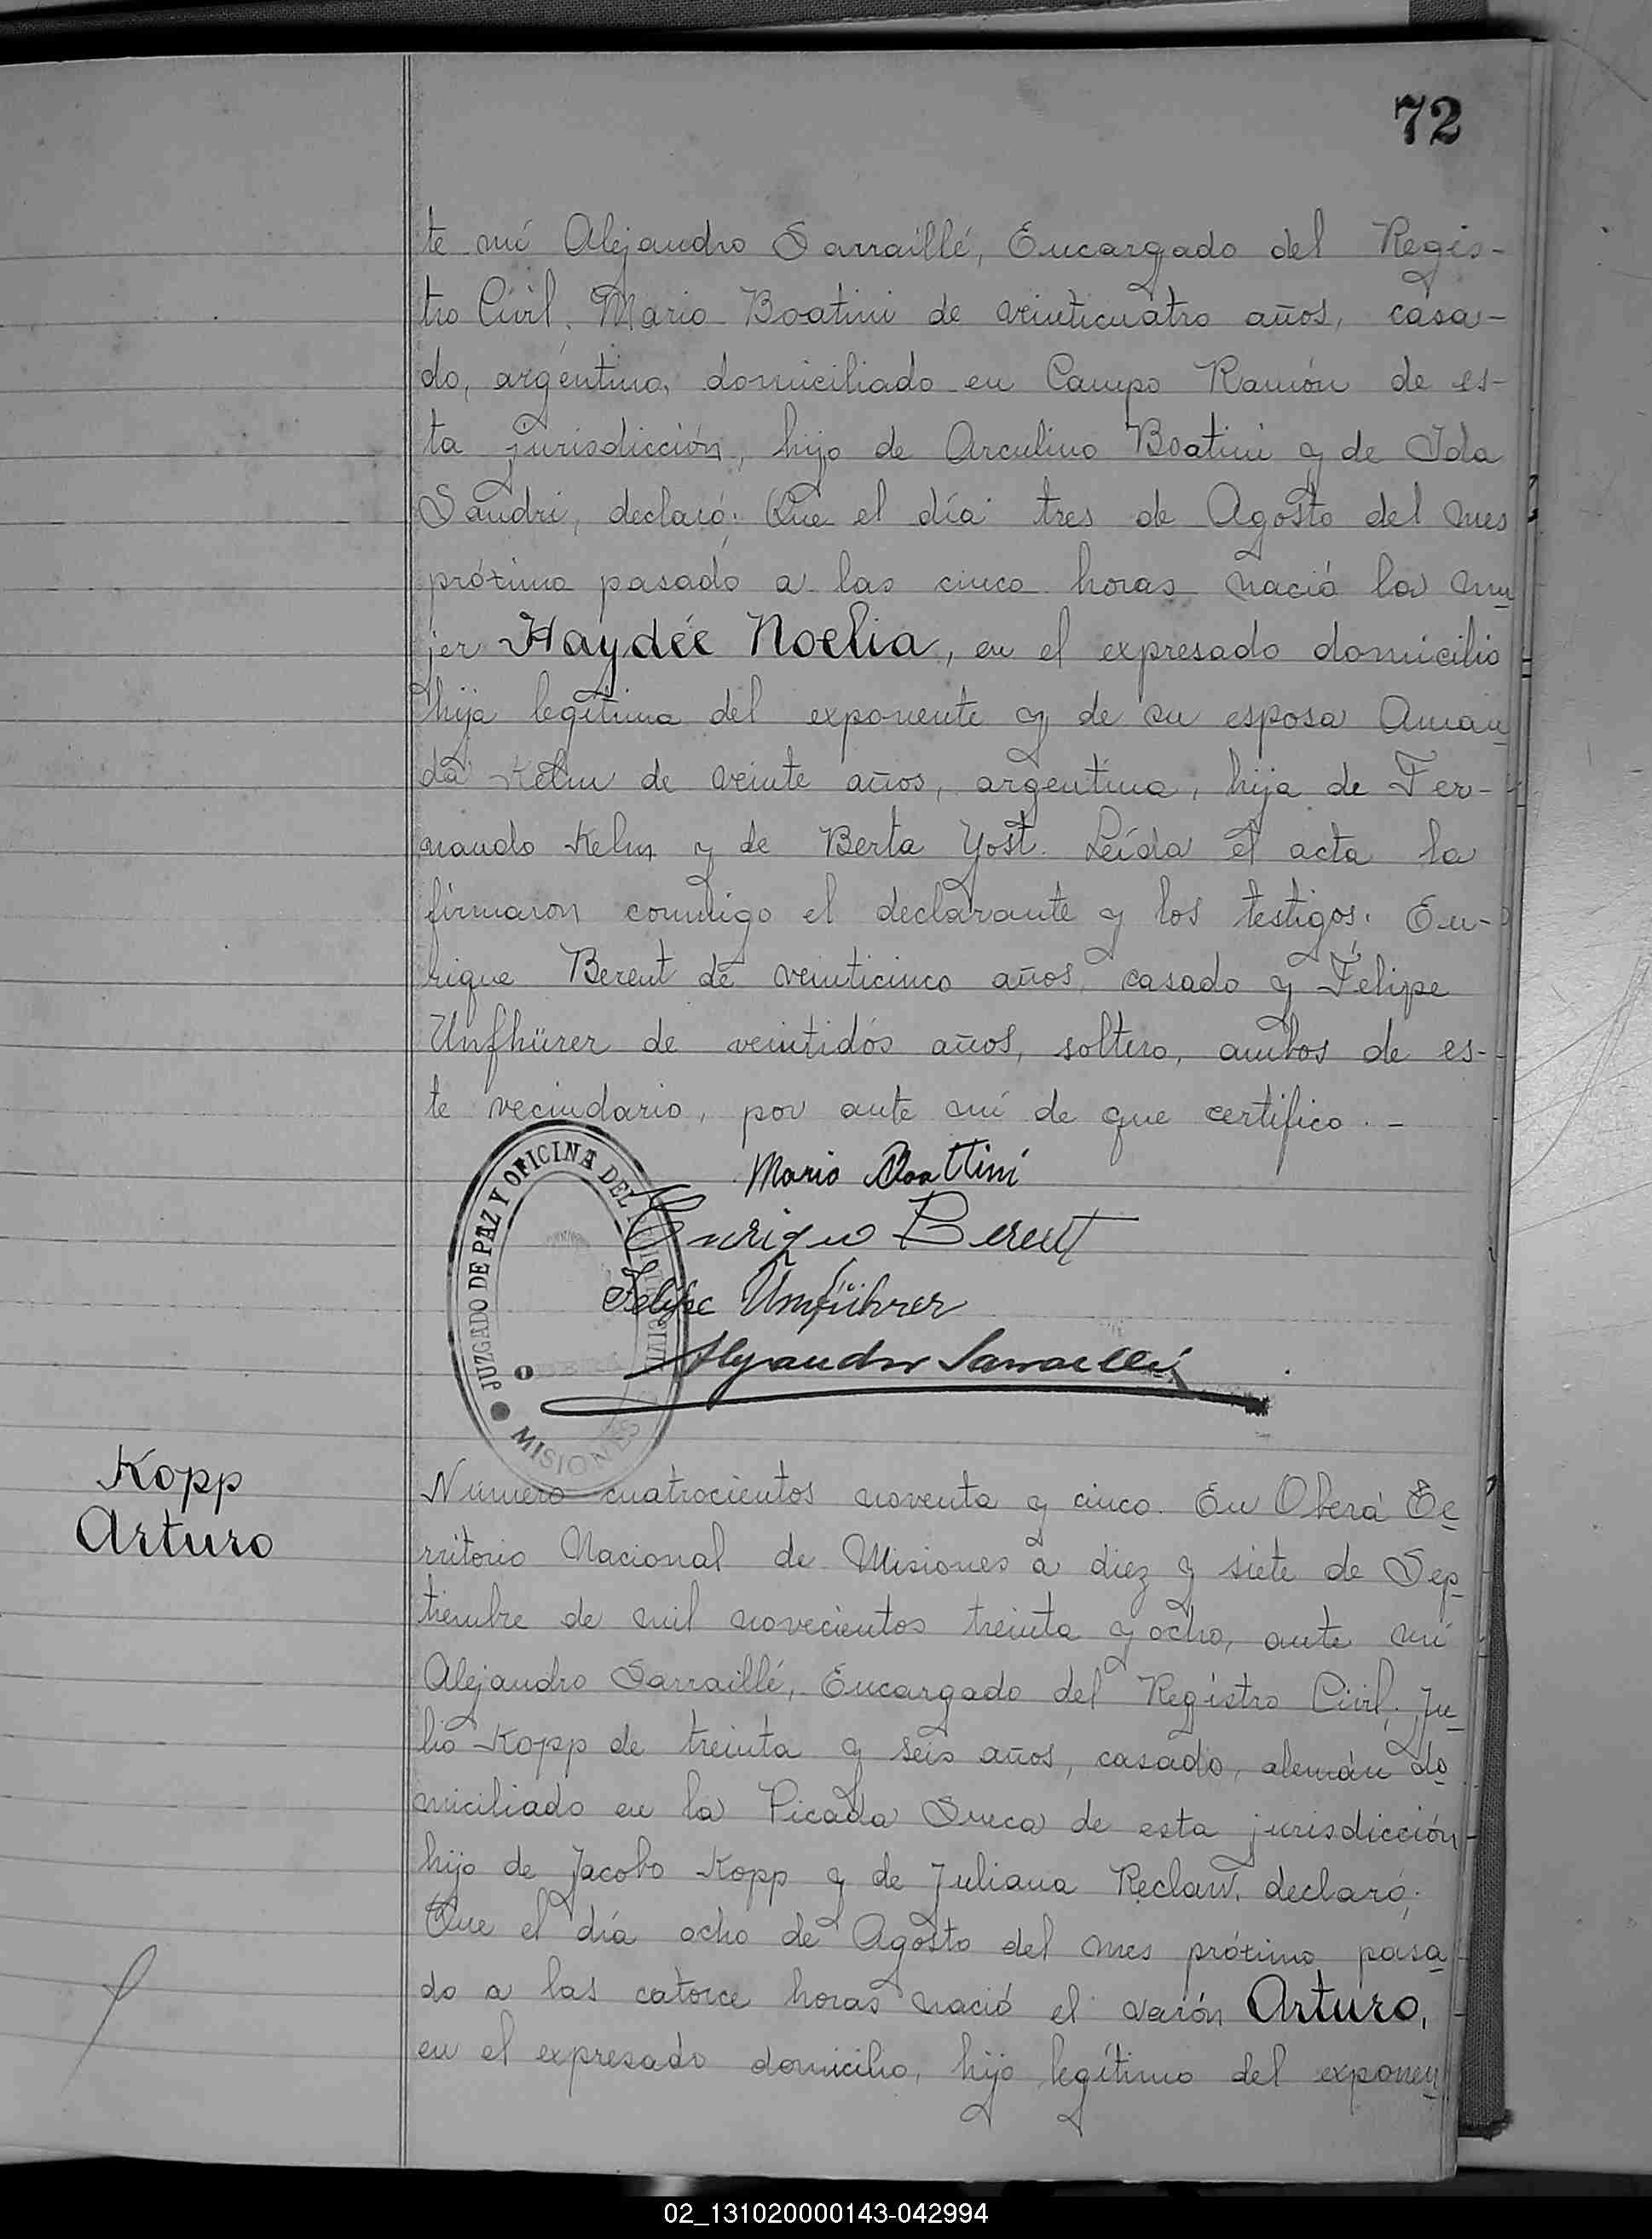 72
te mí Alejandro Sarraillé, Encargado del Regis-
tro Civil, Mario Boatini de veinticuatro años, casa-
do, argentino, domiciliado en Campo Ramón de es-
ta jurisdicción, hijo de Arculino Boatini y de Ida
Sandri, declaró: Que el día tres de Agosto del mes
próximo pasado a las cinco horas nació la mu
jer Haydée Noelia, en el expresado domicilio
hija legítima del exponente y de su esposa Aman
da Kelm de veinte años, argentina, hija de Fer-
nando Kelm y de Berta Yost. Leída el acta la
firmaron conmigo el declarante y los testigos: En-
rique Berent de veinticinco años, casado y Felipe
Unfhürer de veintidós años, soltero, ambos de es-
te vecindario, por ante mí de que certifico. -
JUZGADO DE PAZ Y OFICINA DEL
MISIONES
Mario Boattini
Enrique Berent
Felipe Umführer
Alejandro Sarraillé
Kopp
Arturo
Número cuatrocientos noventa y cinco. En Oberá Te
rritorio Nacional de Misiones a diez y siete de Sep
tiembre de mil novecientos treinta y ocho, ante mí
Alejandro Sarraillé, Encargado del Registro Civil, Ju
lio Kopp de treinta y seis años, casado, alemán do
miciliado en la Picada Sueca de esta jurisdicción
hijo de Jacobo Kopp y de Juliana Reclaw, declaró;
Que el día ocho de Agosto del mes próximo pasa
do a las catorce horas nació el varón Arturo,
en el expresado domicilio, hijo legítimo del exponen
02_131020000143-042994